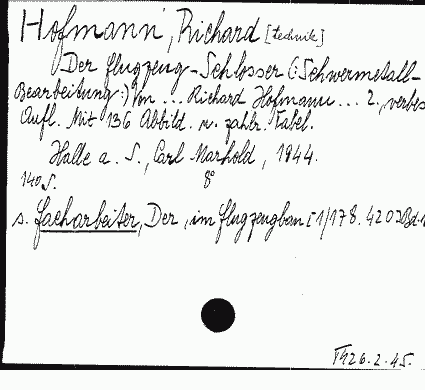 Hofmann, Richard [Technik]
Der Flugzeug-Schlosser (:Schwermetall-
Bearbeitung:) Von ... Richard Hofmann ... 2., verbes
Aufl. Mit 136 Abbild. u. zahlr. Tabel.
Halle a. S., Carl Marhold, 1944.
140 S. 8°
s. Facharbeiter, Der, im Flugzeugbau [1/178.420] Bd.
26.2.45.